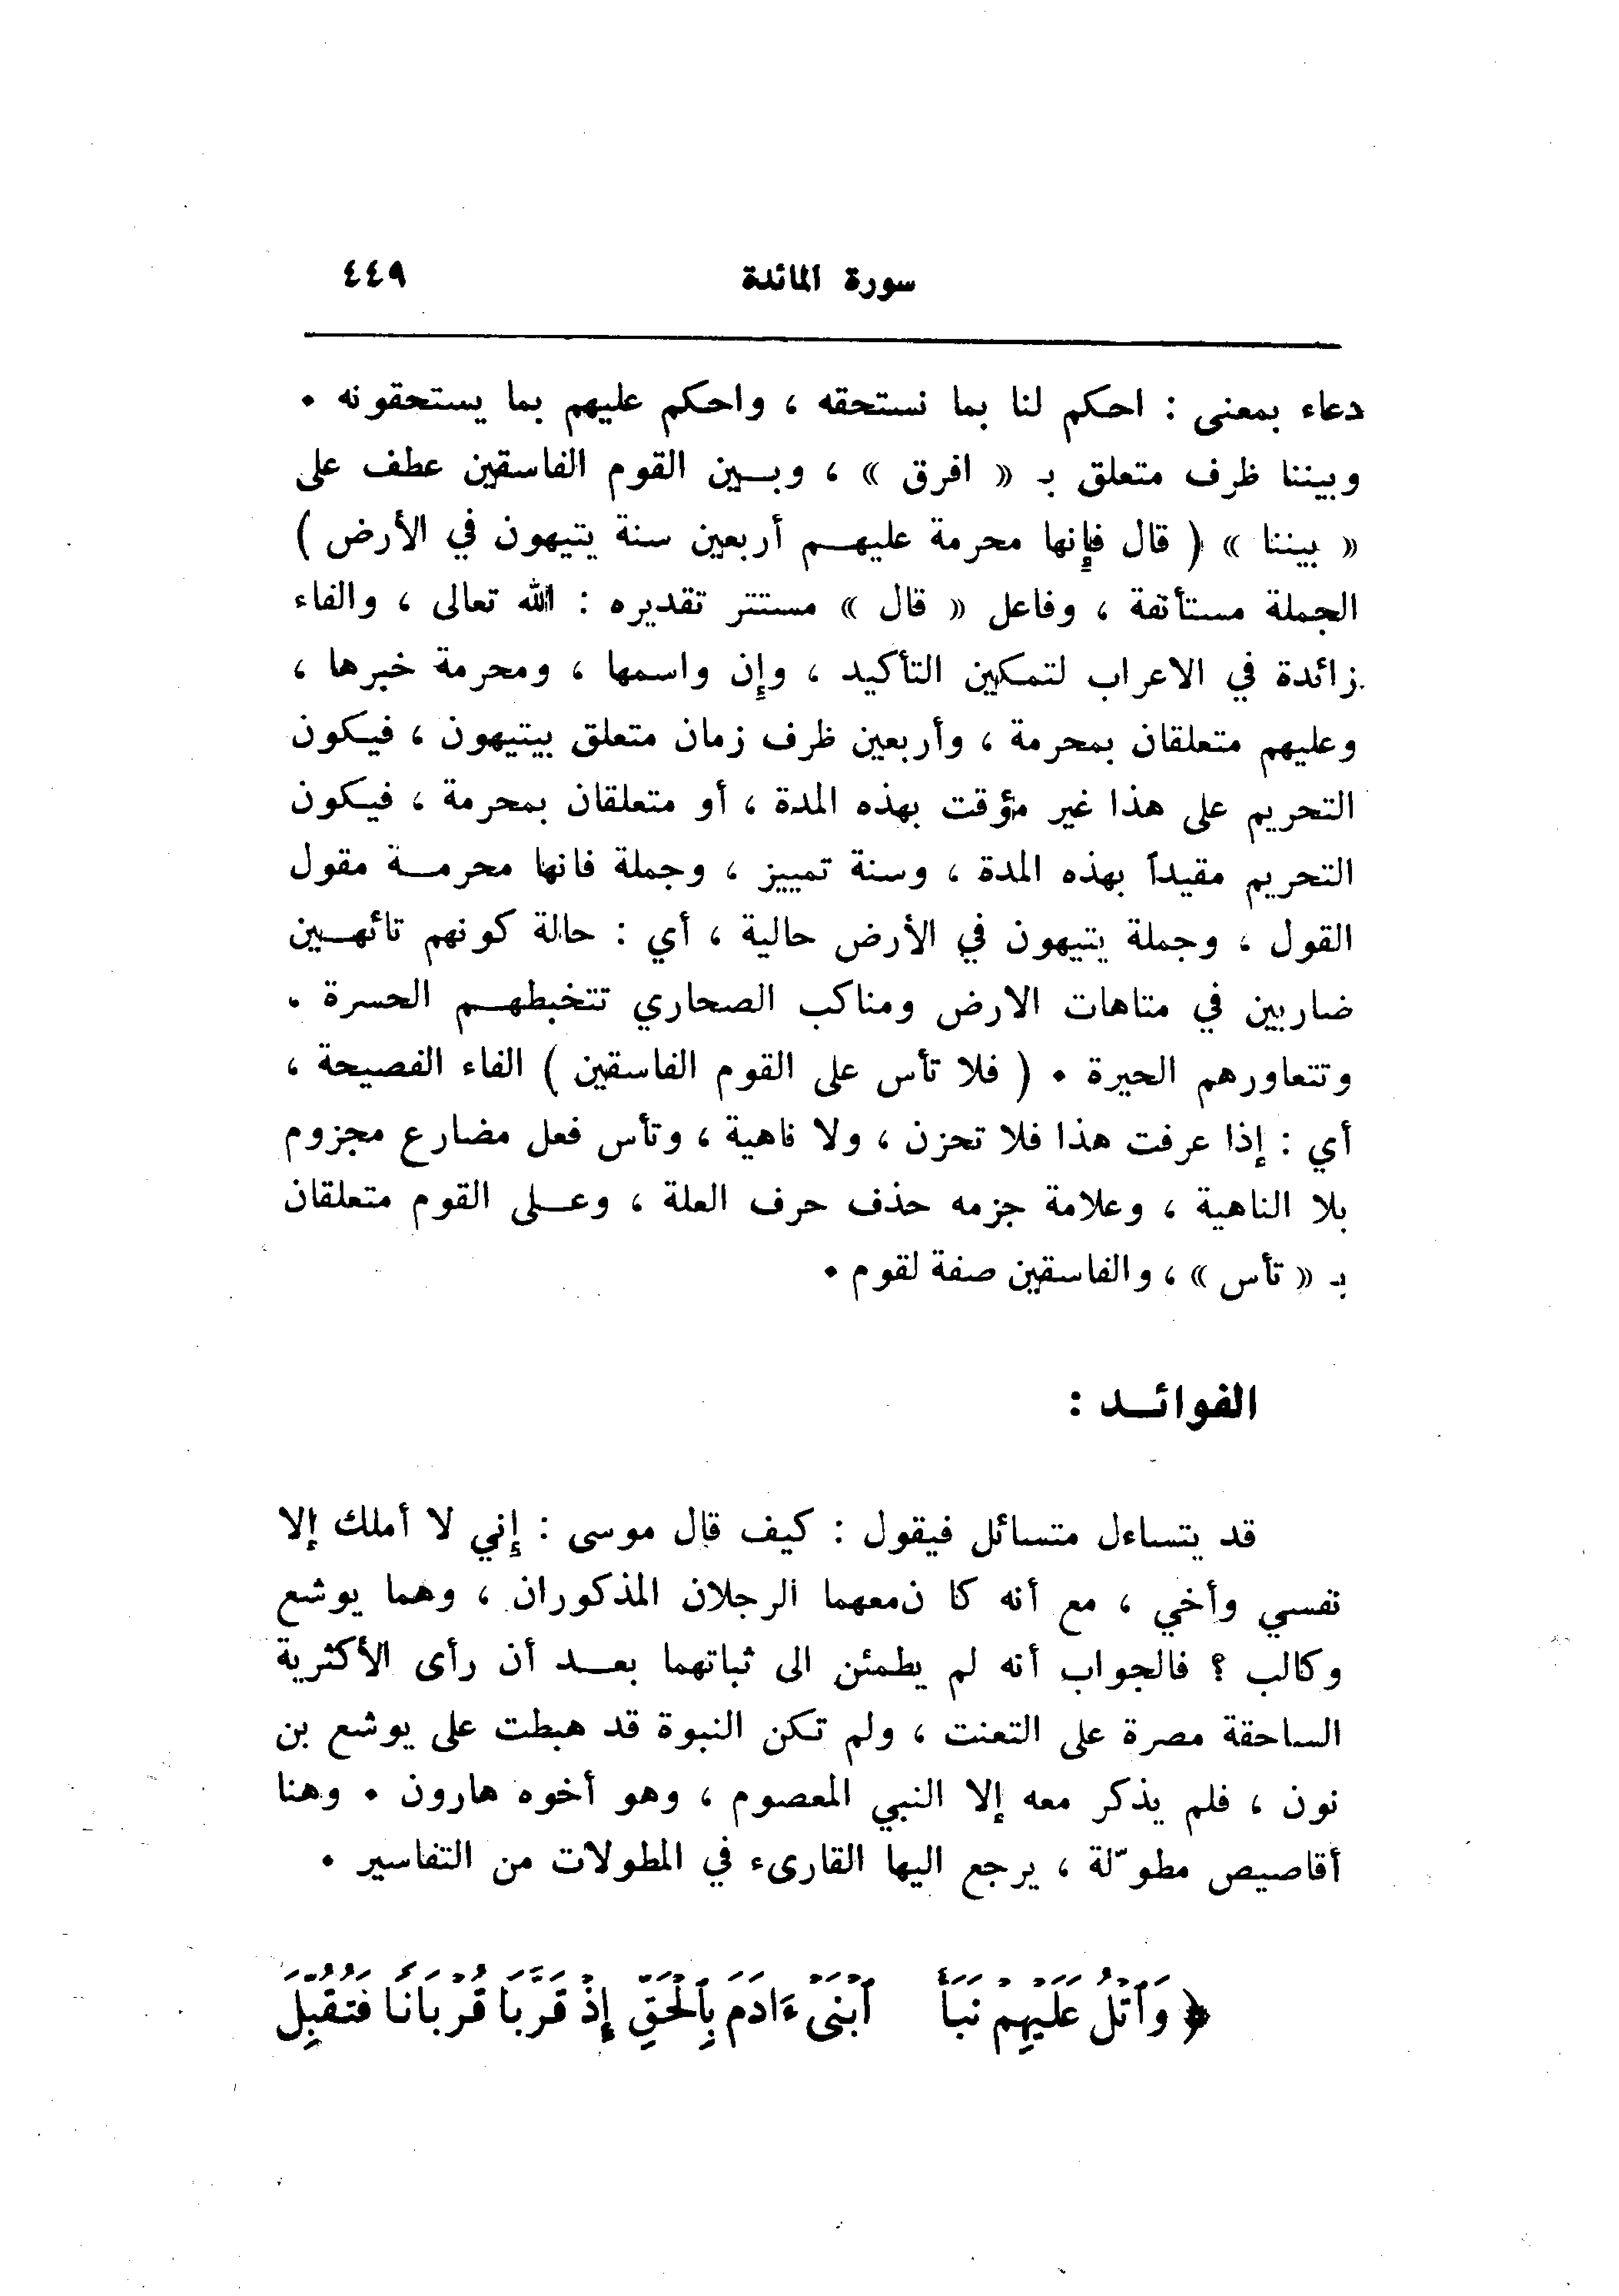 سورة المائدة ٤٤٩
دعاء بمعنى : احكم لنا بما نستحقه ، واحكم عليهم بما يستحقونه .
وبيننا ظرف متعلق بـ « افرق » ، وبين القوم الفاسقين عطف على
« بيننا » ( قال فإنها محرمة عليهم أربعين سنة يتيهون في الأرض )
الجملة مستأنفة ، وفاعل « قال » مستتر تقديره : الله تعالى ، والفاء
زائدة في الاعراب لتمكين التأكيد ، وإن واسمها ، ومحرمة خبرها ،
وعليهم متعلقان بمحرمة ، وأربعين ظرف زمان متعلق بيتيهون ، فيكون
التحريم على هذا غير مؤقت بهذه المدة ، أو متعلقان بمحرمة ، فيكون
التحريم مقيداً بهذه المدة ، وسنة تمييز ، وجملة فانها محرمة مقول
القول ، وجملة يتيهون في الأرض حالية ، أي : حالة كونهم تائهين
ضاربين في متاهات الارض ومناكب الصحاري تتخبطهم الحسرة .
وتتعاورهم الحيرة . ( فلا تأس على القوم الفاسقين ) الفاء الفصيحة ،
أي : إذا عرفت هذا فلا تحزن ، ولا ناهية ، وتأس فعل مضارع مجزوم
بلا الناهية ، وعلامة جزمه حذف حرف العلة ، وعلى القوم متعلقان
بـ « تأس » ، والفاسقين صفة لقوم .
الفوائد :
قد يتساءل متسائل فيقول : كيف قال موسى : إني لا أملك إلا
نفسي وأخي ، مع أنه كا نمعهما الرجلان المذكوران ، وهما يوشع
وكالب ؟ فالجواب أنه لم يطمئن الى ثباتهما بعد أن رأى الأكثرية
الساحقة مصرة على التعنت ، ولم تكن النبوة قد هبطت على يوشع بن
نون ، فلم يذكر معه إلا النبي المعصوم ، وهو أخوه هارون . وهنا
أقاصيص مطوّلة ، يرجع اليها القارىء في المطولات من التفاسير .
﴿ وَٱتْلُ عَلَيْهِمْ نَبَأَ ٱبْنَىْ ءَادَمَ بِٱلْحَقِّ إِذْ قَرَّبَا قُرْبَانًا فَتُقُبِّلَ